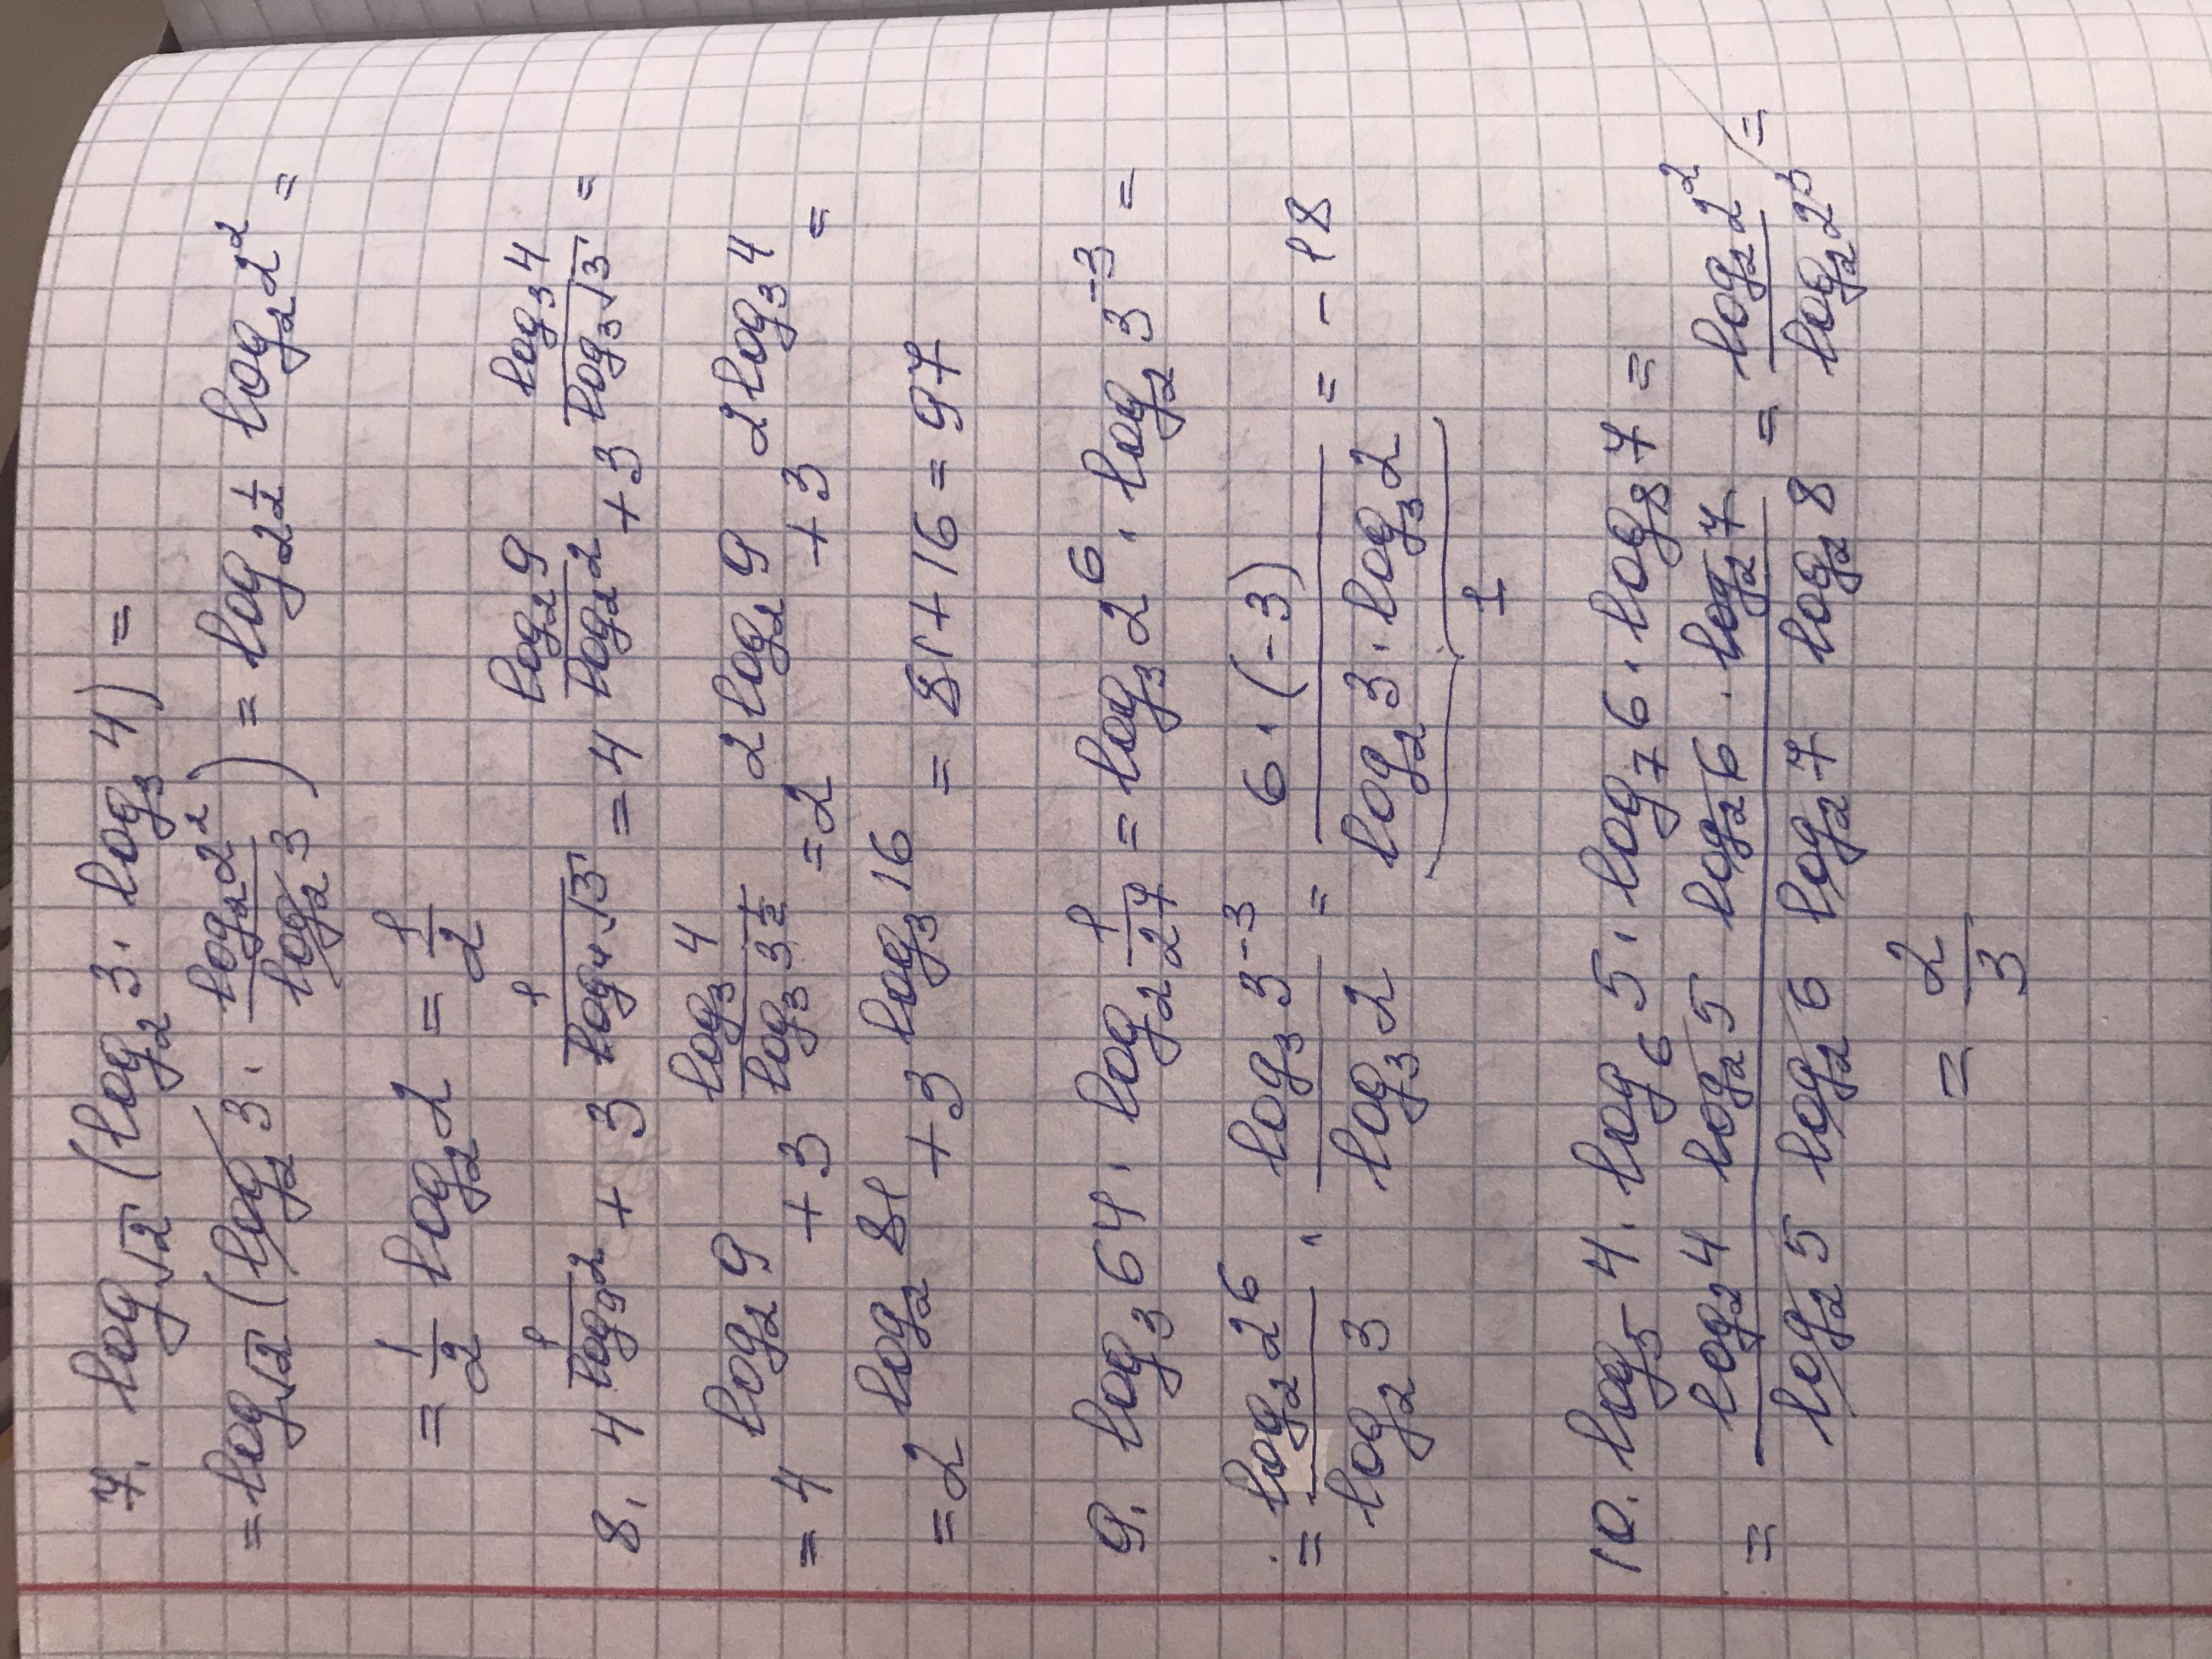 7. log_√2 (log₂ 3 · log₃ 4) =
= log_√2 (log₂ 3 · (log₂ 2²)/(log₂ 3)) = log_{2^{1/2}} log₂ 2² =
= 1/2 log₂ 2 = 1/2
8. 4^{1/(log₉ 2)} + 3^{1/(log₄ √3)} = 4^{(log₂ 9)/(log₂ 2)} + 3^{(log₃ 4)/(log₃ √3)} =
= 4^{log₂ 9} + 3^{(log₃ 4)/(log₃ 3^{1/2})} = 2^{2 log₂ 9} + 3^{2 log₃ 4} =
= 2^{log₂ 81} + 3^{log₃ 16} = 81 + 16 = 97
9. log₃ 64 · log₂ 1/27 = log₃ 2⁶ · log₂ 3⁻³ =
= (log₂ 2⁶)/(log₂ 3) · (log₃ 3⁻³)/(log₃ 2) = (6 · (-3))/(log₂ 3 · log₃ 2) = - 18
1
10. log₅ 4 · log₆ 5 · log₇ 6 · log₈ 7 =
= (log₂ 4 log₂ 5 log₂ 6 · log₂ 7)/(log₂ 5 log₂ 6 log₂ 7 log₂ 8) = (log₂ 2²)/(log₂ 2³) =
= 2/3